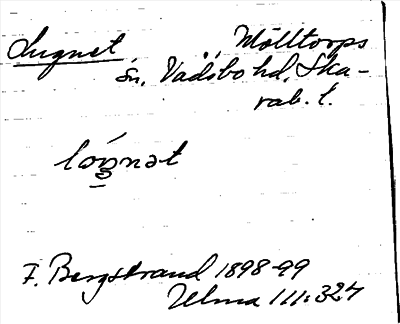 Lugnet Mölltorps
sn, Vadsbo hd, Ska-
rab. l.
F. Bergstrand 1898-99
Ulma 111:324